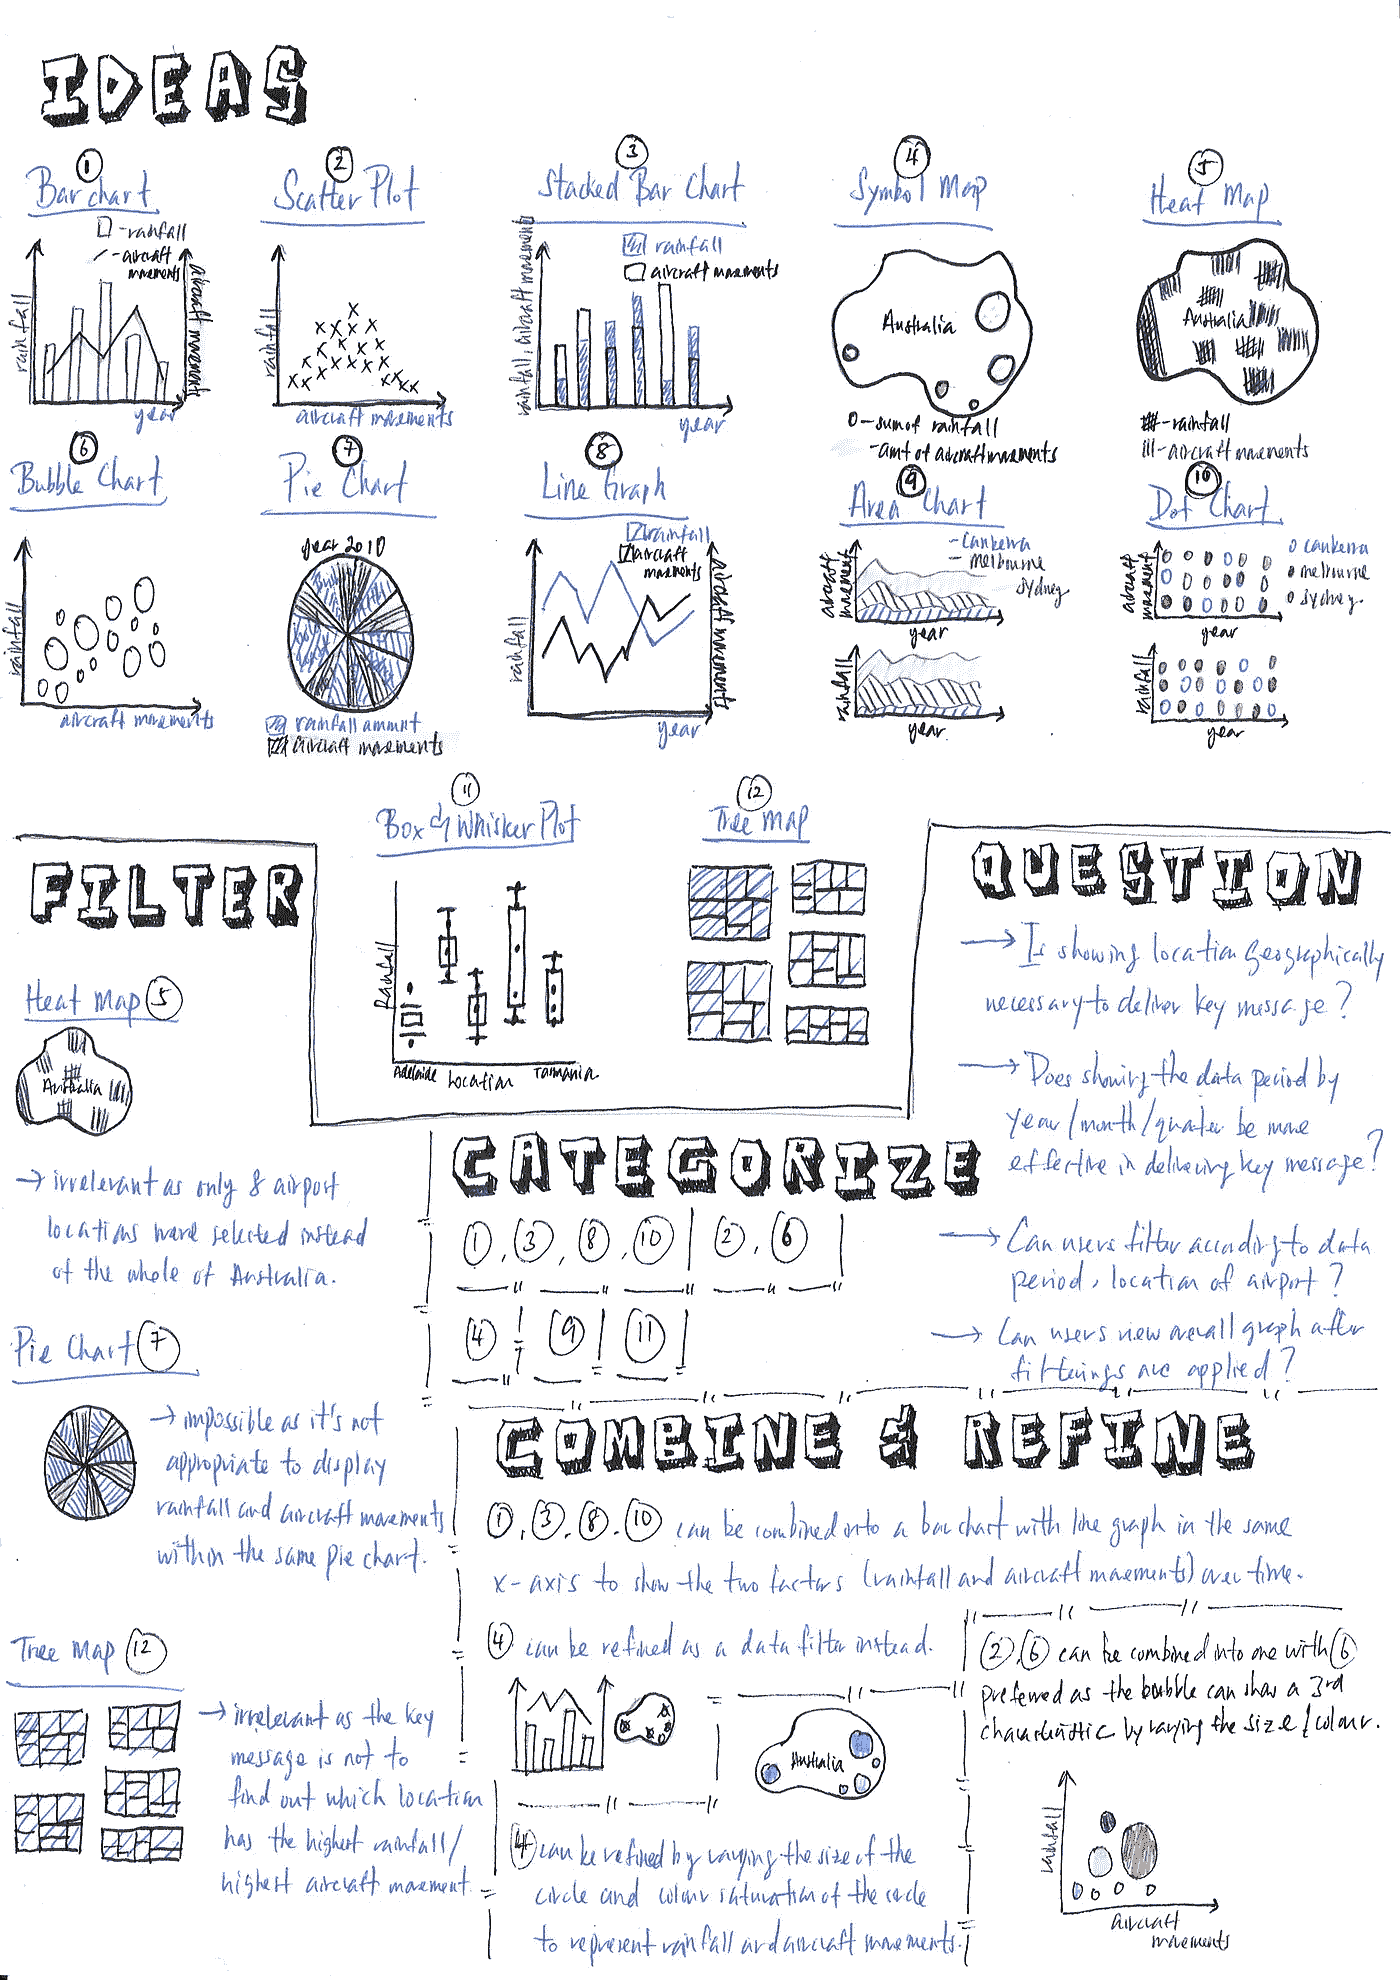 IDEAS
1
Bar chart
- rainfall
- aircraft
movements
rainfall
aircraft movements
year
2
Scatter Plot
rainfall
aircraft movements
3
Stacked Bar Chart
rainfall
aircraft movements
rainfall, aircraft movement
year
4
Symbol Map
Australia
O - sum of rainfall
- amt of aircraft movements
5
Heat Map
Australia
- rainfall
- aircraft movements
6
Bubble Chart
rainfall
aircraft movements
7
Pie Chart
year 2010
rainfall amount
aircraft movements
8
Line Graph
rainfall
aircraft
movements
rainfall
aircraft movements
year
9
Area Chart
- Canberra
- Melbourne
Sydney
aircraft
movement
year
rainfall
year
10
Dot Chart
O Canberra
melbourne
O Sydney
aircraft
movement
year
rainfall
year
11
Box & Whisker Plot
Rainfall
Adelaide Location Tasmania
12
Tree Map
FILTER
Heat Map 5
Australia
→ irrelevant as only 8 airport
locations were selected instead
of the whole of Australia.
Pie Chart 7
→ impossible as it's not
appropriate to display
rainfall and aircraft movements
within the same pie chart.
Tree Map 12
→ irrelevant as the key
message is not to
find out which location
has the highest rainfall/
highest aircraft movement.
QUESTION
→ Is showing location Geographically
necessary to deliver key message?
→ Does showing the data period by
year/month/quater be more
effective in delivering key message?
→ Can users filter according to data
period, location of airport?
→ Can users view overall graph after
filterings are applied?
CATEGORIZE
1, 3, 8, 10 | 2, 6
4 9 11
COMBINE & REFINE
1, 3, 8, 10 can be combined into a bar chart with line graph in the same
x-axis to show the two factors (rainfall and aircraft movements) over time.
4 can be refined as a data filter instead.
Australia
4 can be refined by varying the size of the
circle and colour saturation of the circle
to represent rainfall and aircraft movements.
2, 6 can be combined into one with 6
preferred as the bubble can show a 3rd
characteristic by varying the size / colour.
rainfall
aircraft
movements